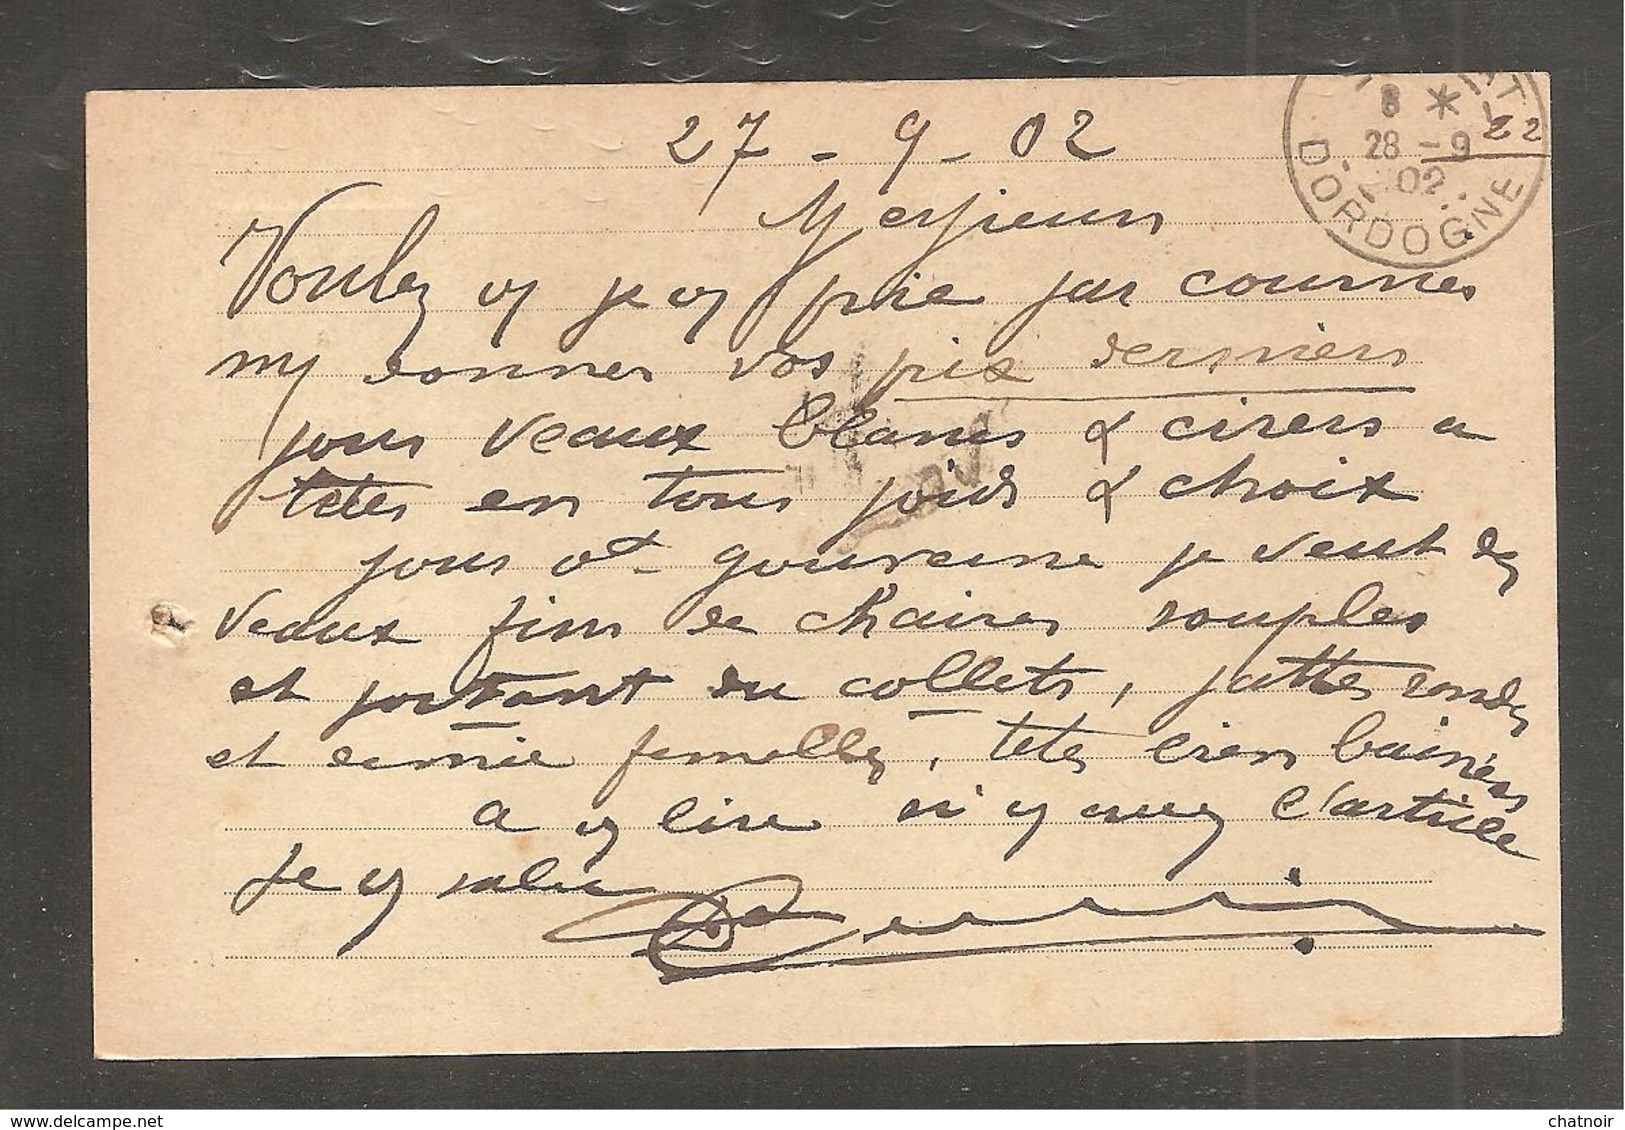 27 - 9 - 02
8 * 22
28 - 9
02
DORDOGNE
Messieurs
Voulez vs je vs prie par courries
my donner vos prix derniers
pour veaux blancs & cirers a
tetes en tous poids & choix
pour
veaux fins de chaires souples
et portant du collets, pattes rondes
et demie femelles, tetes bien
a vs lire si vs avez l'article
Je vs salue
chatnoir www.delcampe.net